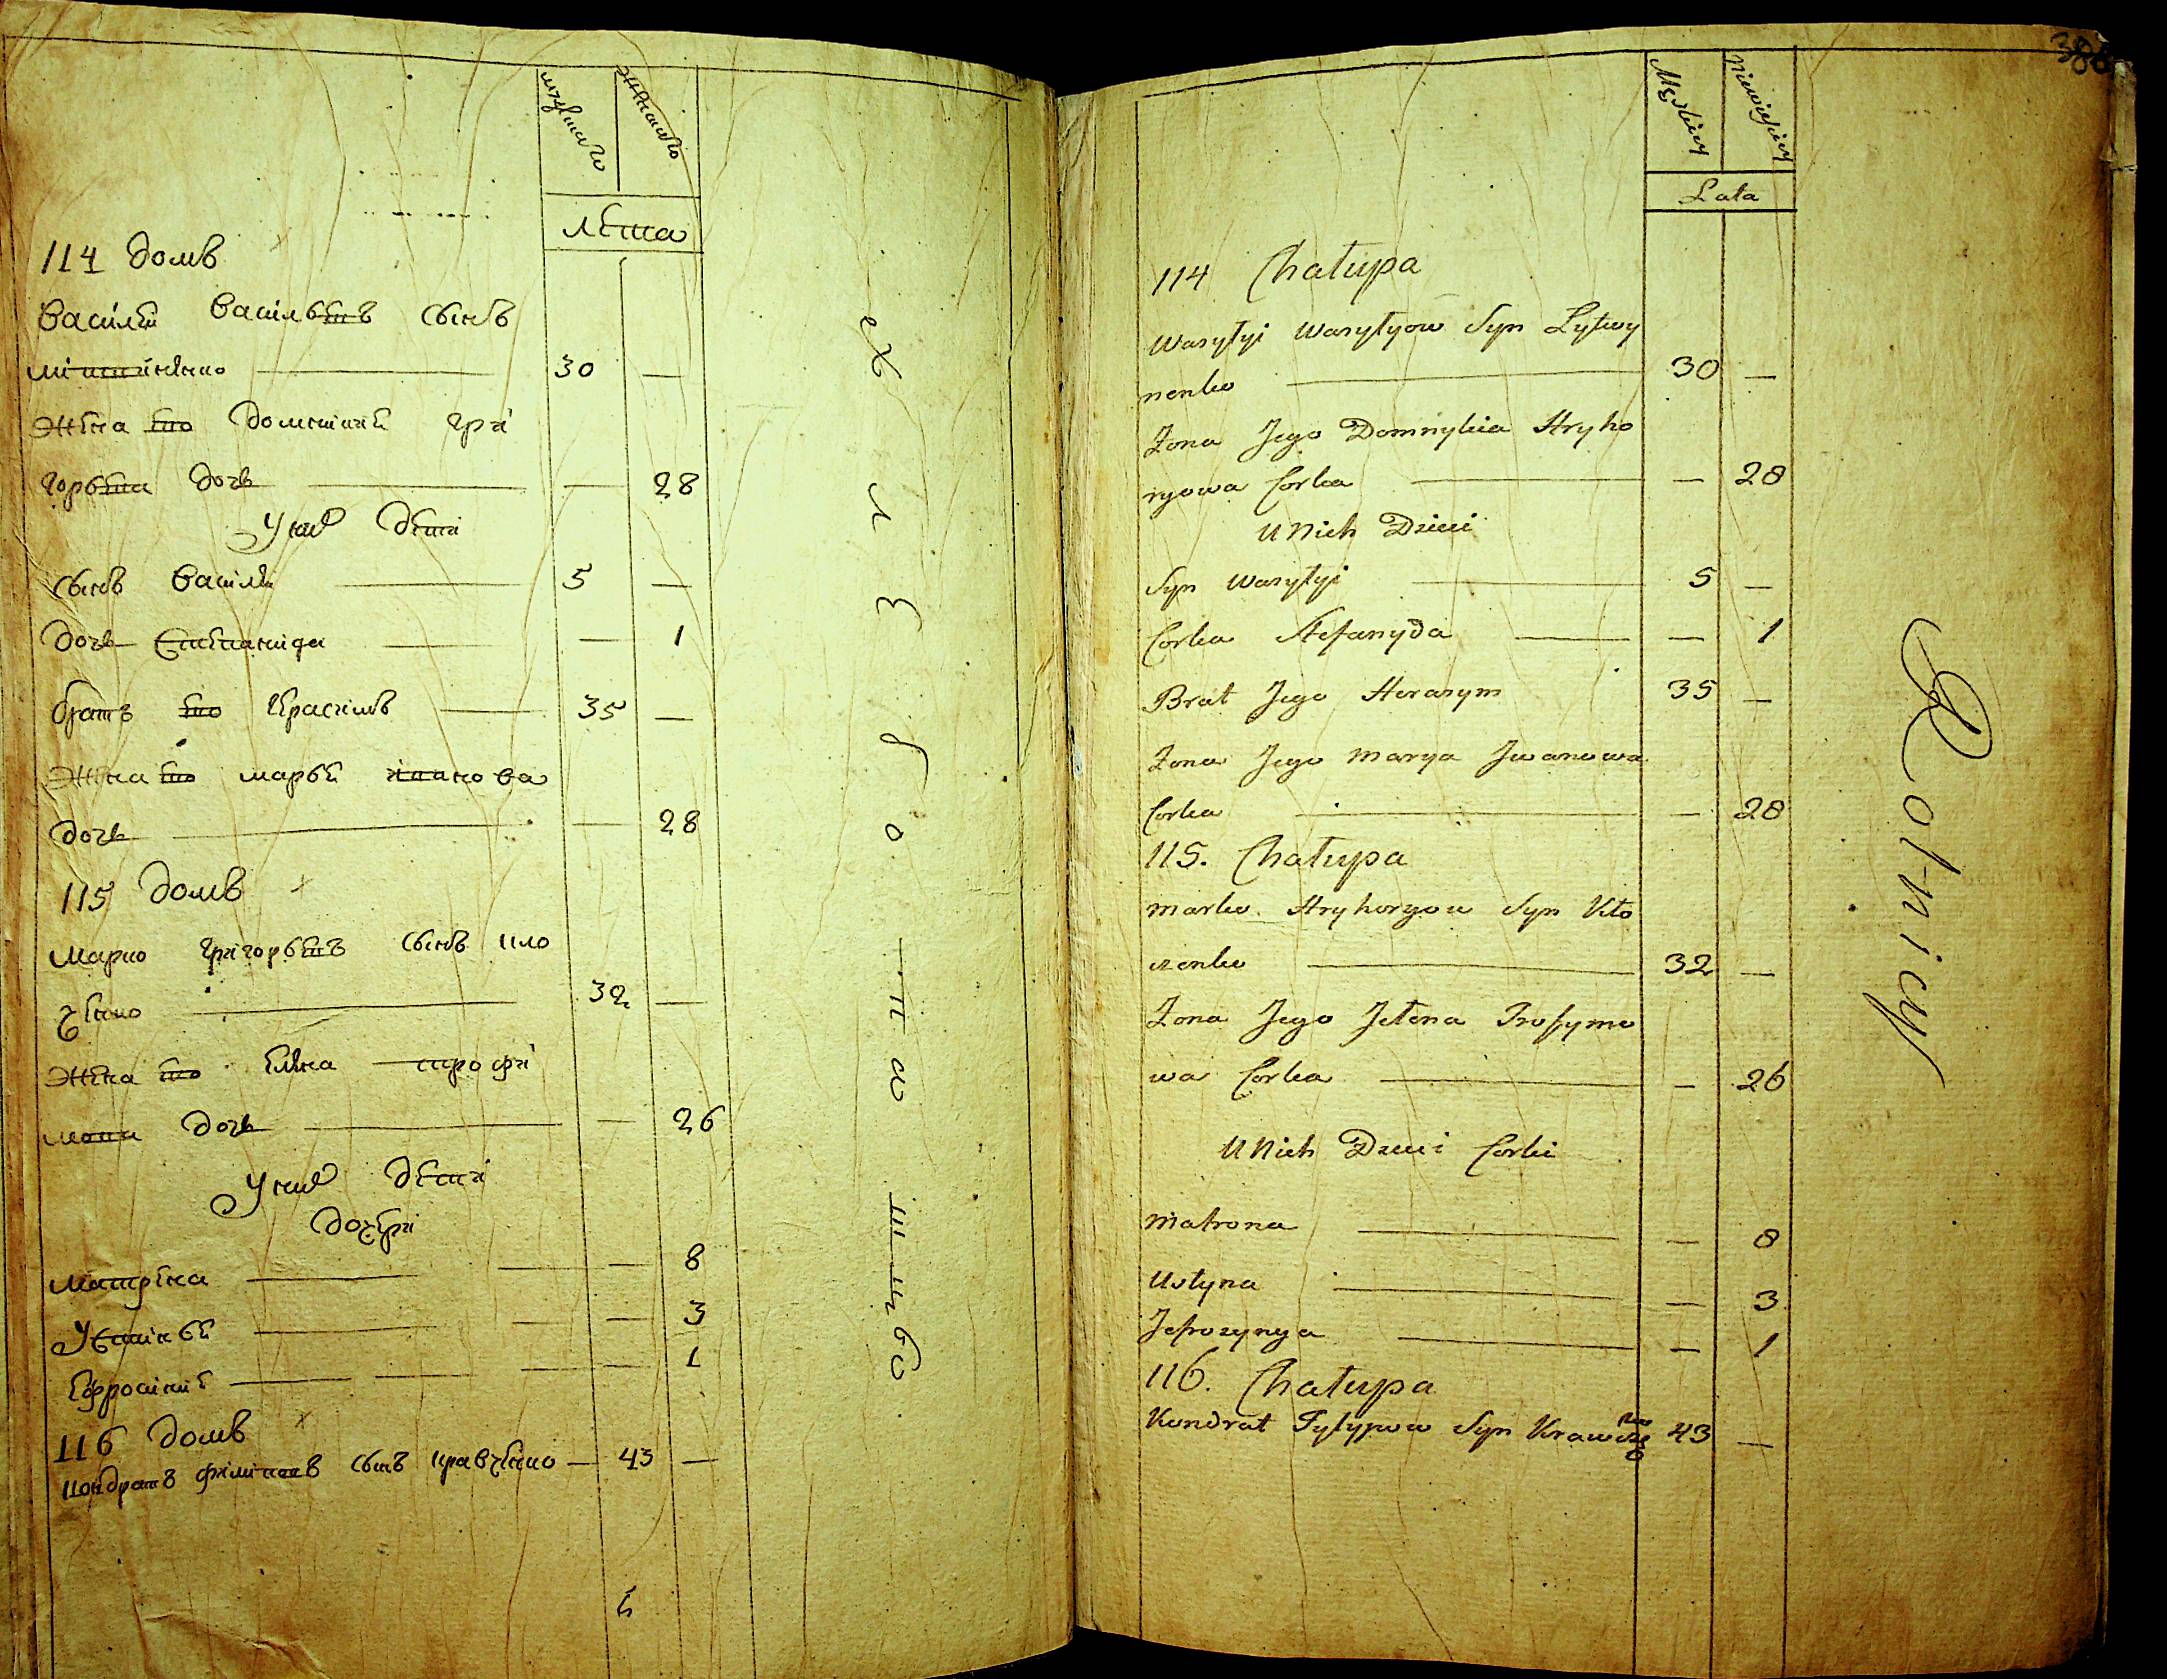 мужска го
женска го
лѣта
114 домъ
Василій Васильевъ сынъ
литвиненко — 30 —
жена его Домникія Гри
горьева дочь — — 28
У них дѣти
сынъ Василій — 5 —
дочь Степанида — — 1
братъ его Герасимъ — 35 —
жена его Марья Иванова
дочь — — 28
115 домъ
Марко Григорьевъ сынъ Кло
ченко — 32 —
жена его Елена Трофи
мова дочь — — 26
У них дѣти
дочери
Матрена — — 8
Устинья — — 3
Ефросинія — — 1
116 домъ
Кондратъ Филиповъ сынъ Кравченко — 43 —
хлѣборо
пашцы
388
Męskiey
Niewieskiey
Lata
114 Chałupa
Wasyłyi Wasyłyow Syn Lytwy
nenko — 30 —
Zona Jego Domnykia Hryho
ryowa Corka — — 28
U Nich Dzieci
Syn Wasyłyi — 5 —
Corka Stefanyda — — 1
Brat Jego Herasym 35 —
Zona Jego Marya Jwanowa
Corka — — 28
115. Chałupa
Marko Hryhoryow Syn Kło
czenko — 32 —
Zona Jego Jełena Trofymo
wa Corka — — 26
U Nich Dzieci Corki
Matrona — — 8
Ustyna — — 3
Jefrozynya — — 1
116. Chałupa
Kondrat Fyłypow Syn Krawczenko 43 —
Rolnicy